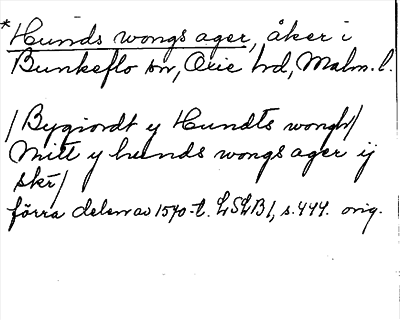 *Hunds wongs ager, åker i
Bunkeflo sn, Oxie hd, Malm. l.
/Bygiordt y Hundts wongh/
Mitt y hunds wongs ager ij
skr/
förra delen av 1570-t. LSLB1, s. 444. orig.